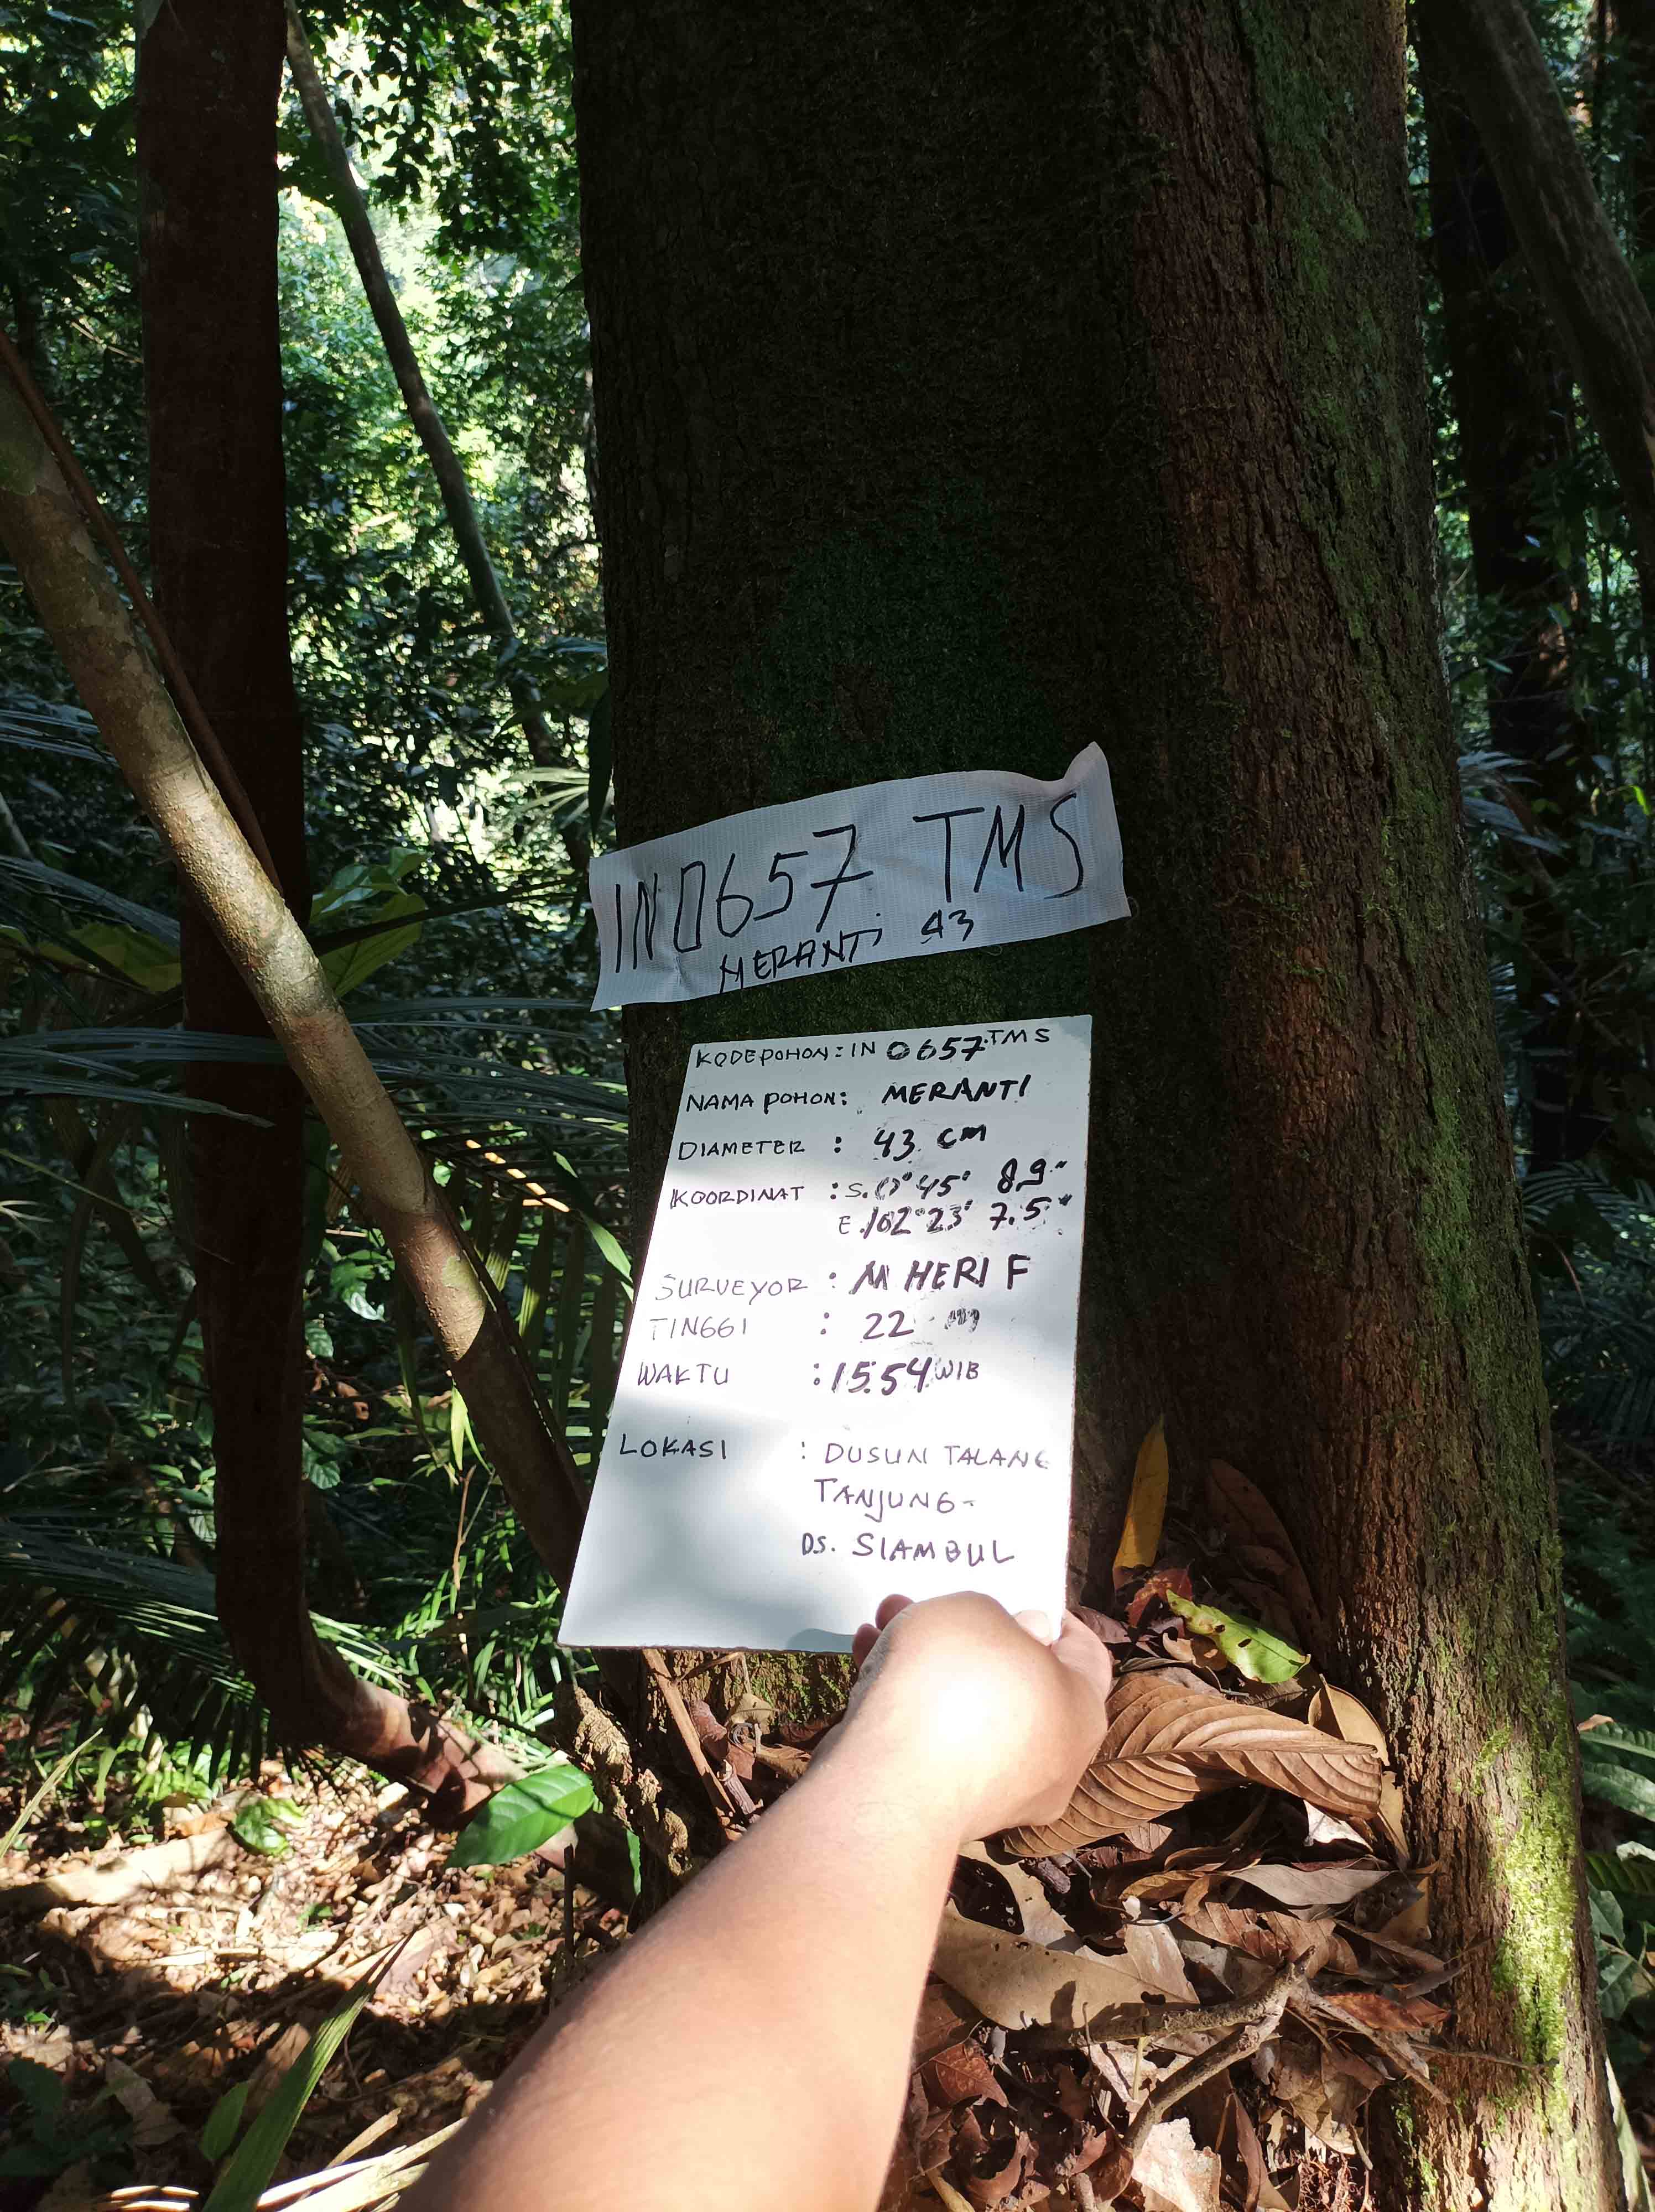 IN0657 TMS
MERANTI 43
KODE POHON : IN 0657 TMS
NAMA POHON : MERANTI
DIAMETER : 43 cm
KOORDINAT : S. 0° 45' 8,9"
E. 102° 23' 7.5"
SURVEYOR : M HERI F
TINGGI : 22 m
WAKTU : 15:54 WIB
LOKASI : DUSUN TALANG
TANJUNG -
DS. SIAMBUL